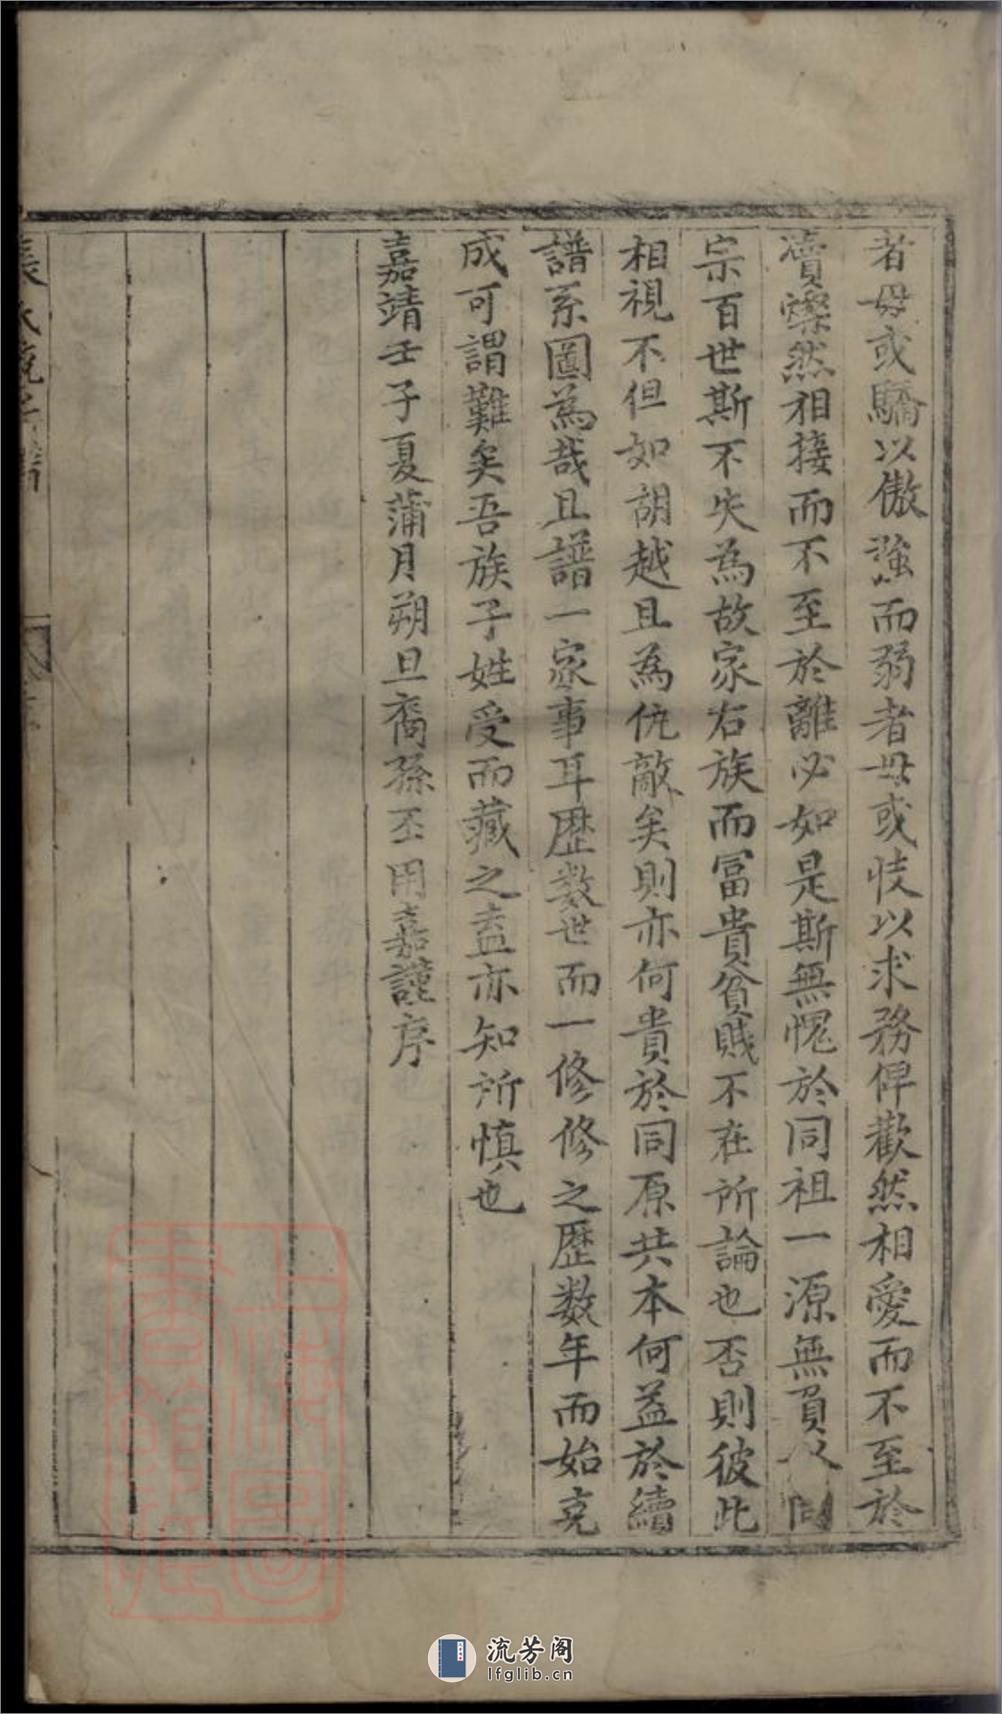 者毋或驕以傲強而弱者毋或忮以求務俾歡然相愛而不至於
瀆燦然相接而不至於離必如是斯無愧於同祖一源無負乂同
宗百世斯不失為故家右族而冨貴貧賤不在所論也否則彼此
相視不但如胡越且為仇敵矣則亦何貴於同原共本何益於續
譜系圖為哉且譜一家事耳歷数世而一修修之歷数年而始克
成可謂難矣吾族子姓受而藏之盍亦知所慎也
嘉靖壬子夏蒲月朔旦裔孫丕用嘉謹序
張氏統宗譜
上海圖書館藏
流芳阁
lfglib.cn